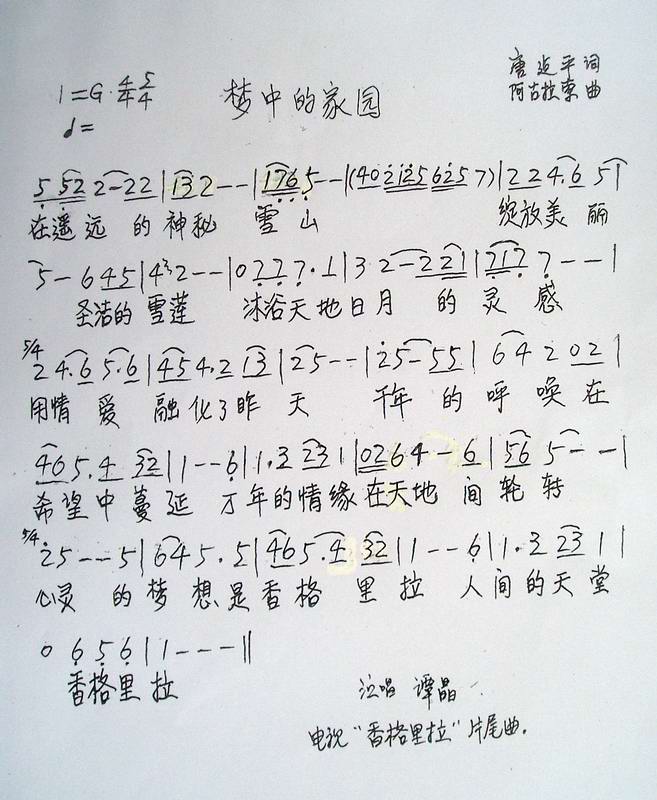 1=G 4/4 5/4
梦中的家园
唐延平 词
阿古拉泰 曲
♩=
5 52 2-22|132--|1765--|(4021256257)|224.651|
在遥远的神秘 雪山 绽放美丽
5-645|432--|0777.1|32-221|2177--|
圣洁的雪莲 沐浴天地日月的灵感
5/4
24.65.6|454.213|25--|25-55|64202|
用情爱融化了昨天 千年的呼唤在
465.432|11--6|1.3231|0264-6|565--|
希望中蔓延 万年的情缘在天地间轮转
5/4
25--5|645.5|465.432|11--6|1.3231|
心灵的梦想是香格里拉 人间的天堂
0656|1---‖
香格里拉
泣唱 谭晶
电视“香格里拉”片尾曲.